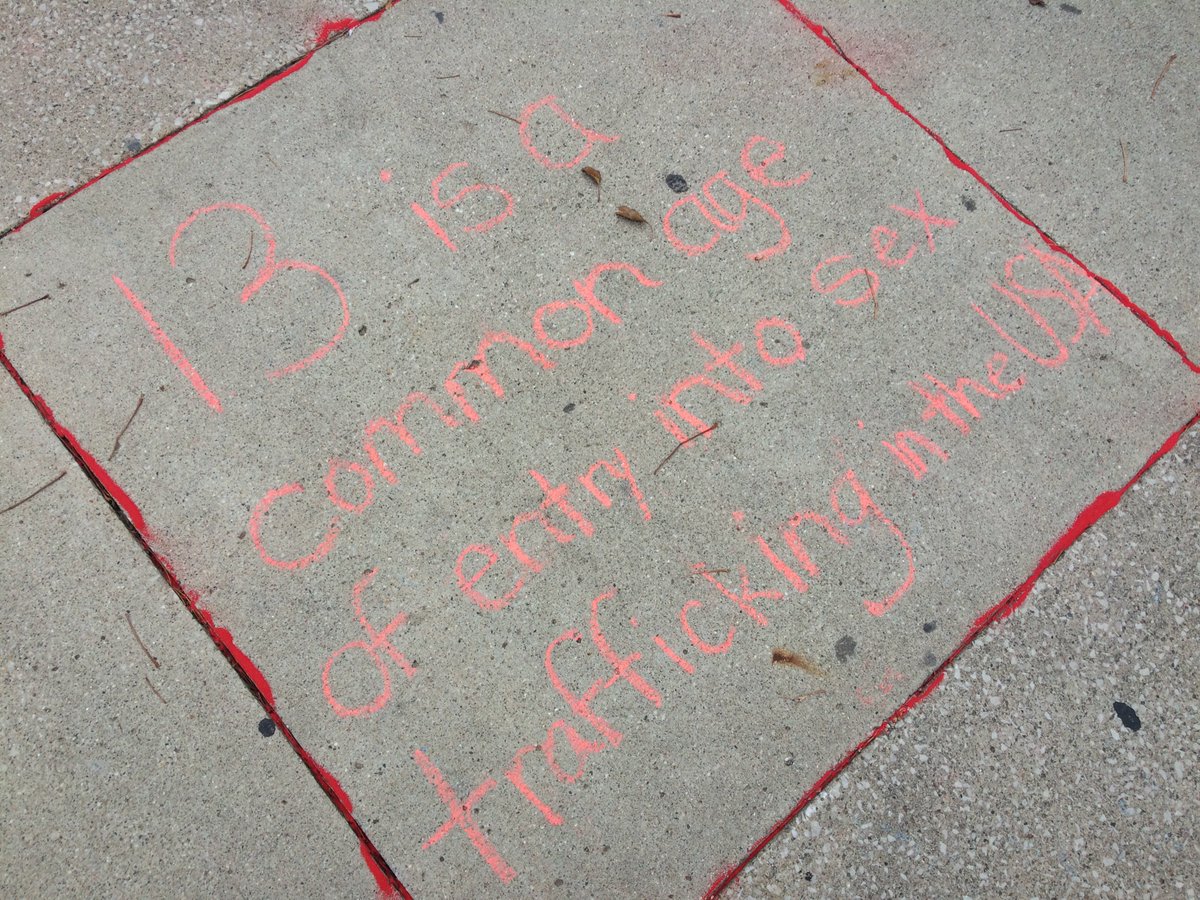 13 is a
common age
of entry into sex
trafficking in the USA